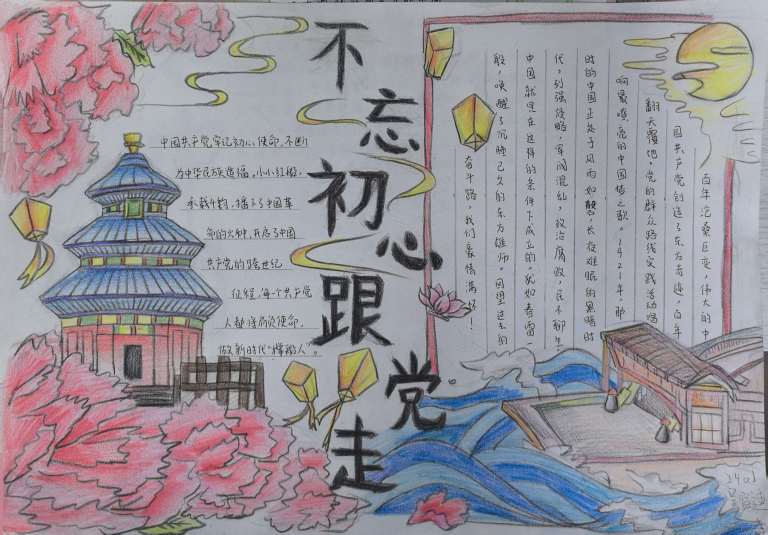 不忘初心跟党走
中国共产党牢记初心使命,不断
为中华民族造福。小小红船,
承载千钧,播下了中国革
命的火种,开启了中国
共产党的跨世纪
征程,每个共产党
人都将肩负使命,
做新时代"撑船人"。
百年沧桑巨变,伟大的中
国共产党创造了东方奇迹,百年
翻天覆地,党的群众路线实践活动唱
响最嘹亮的中国梦之歌。1921年,那
时的中国正处于风雨如磐,长夜难眠的黑暗时
代,列强侵略,军阀混乱,政治腐败,民不聊生
中国就是在这样的条件下成立的,犹如春雷一
般,唤醒了沉睡已久的东方雄师。回望过去的
奋斗路,我们豪情满怀!